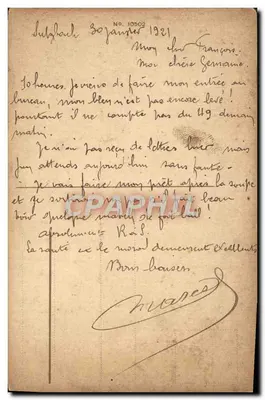 No. 10502
Sulzbach 30 janvier 1921
Mon cher François,
Ma chère Germaine
10 heures. Je viens de faire mon entrée au
bureau, mon bleu n'est pas encore levé !!
pourtant il ne compte pas du 49 demain
matin.
Je n'ai pas reçu de lettres hier mais
j'en attends aujourd'hui sans faute.
Je vais faire mon prêt après la soupe
et je sortirai
CPARTAMA
voir quelque
absolument R.a.S.
La santé et le moral demeurent excellents
Bons baisers
Marcel